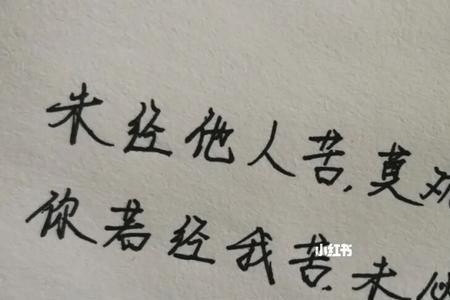 未经他人苦,莫
你若经我苦,未
小红书